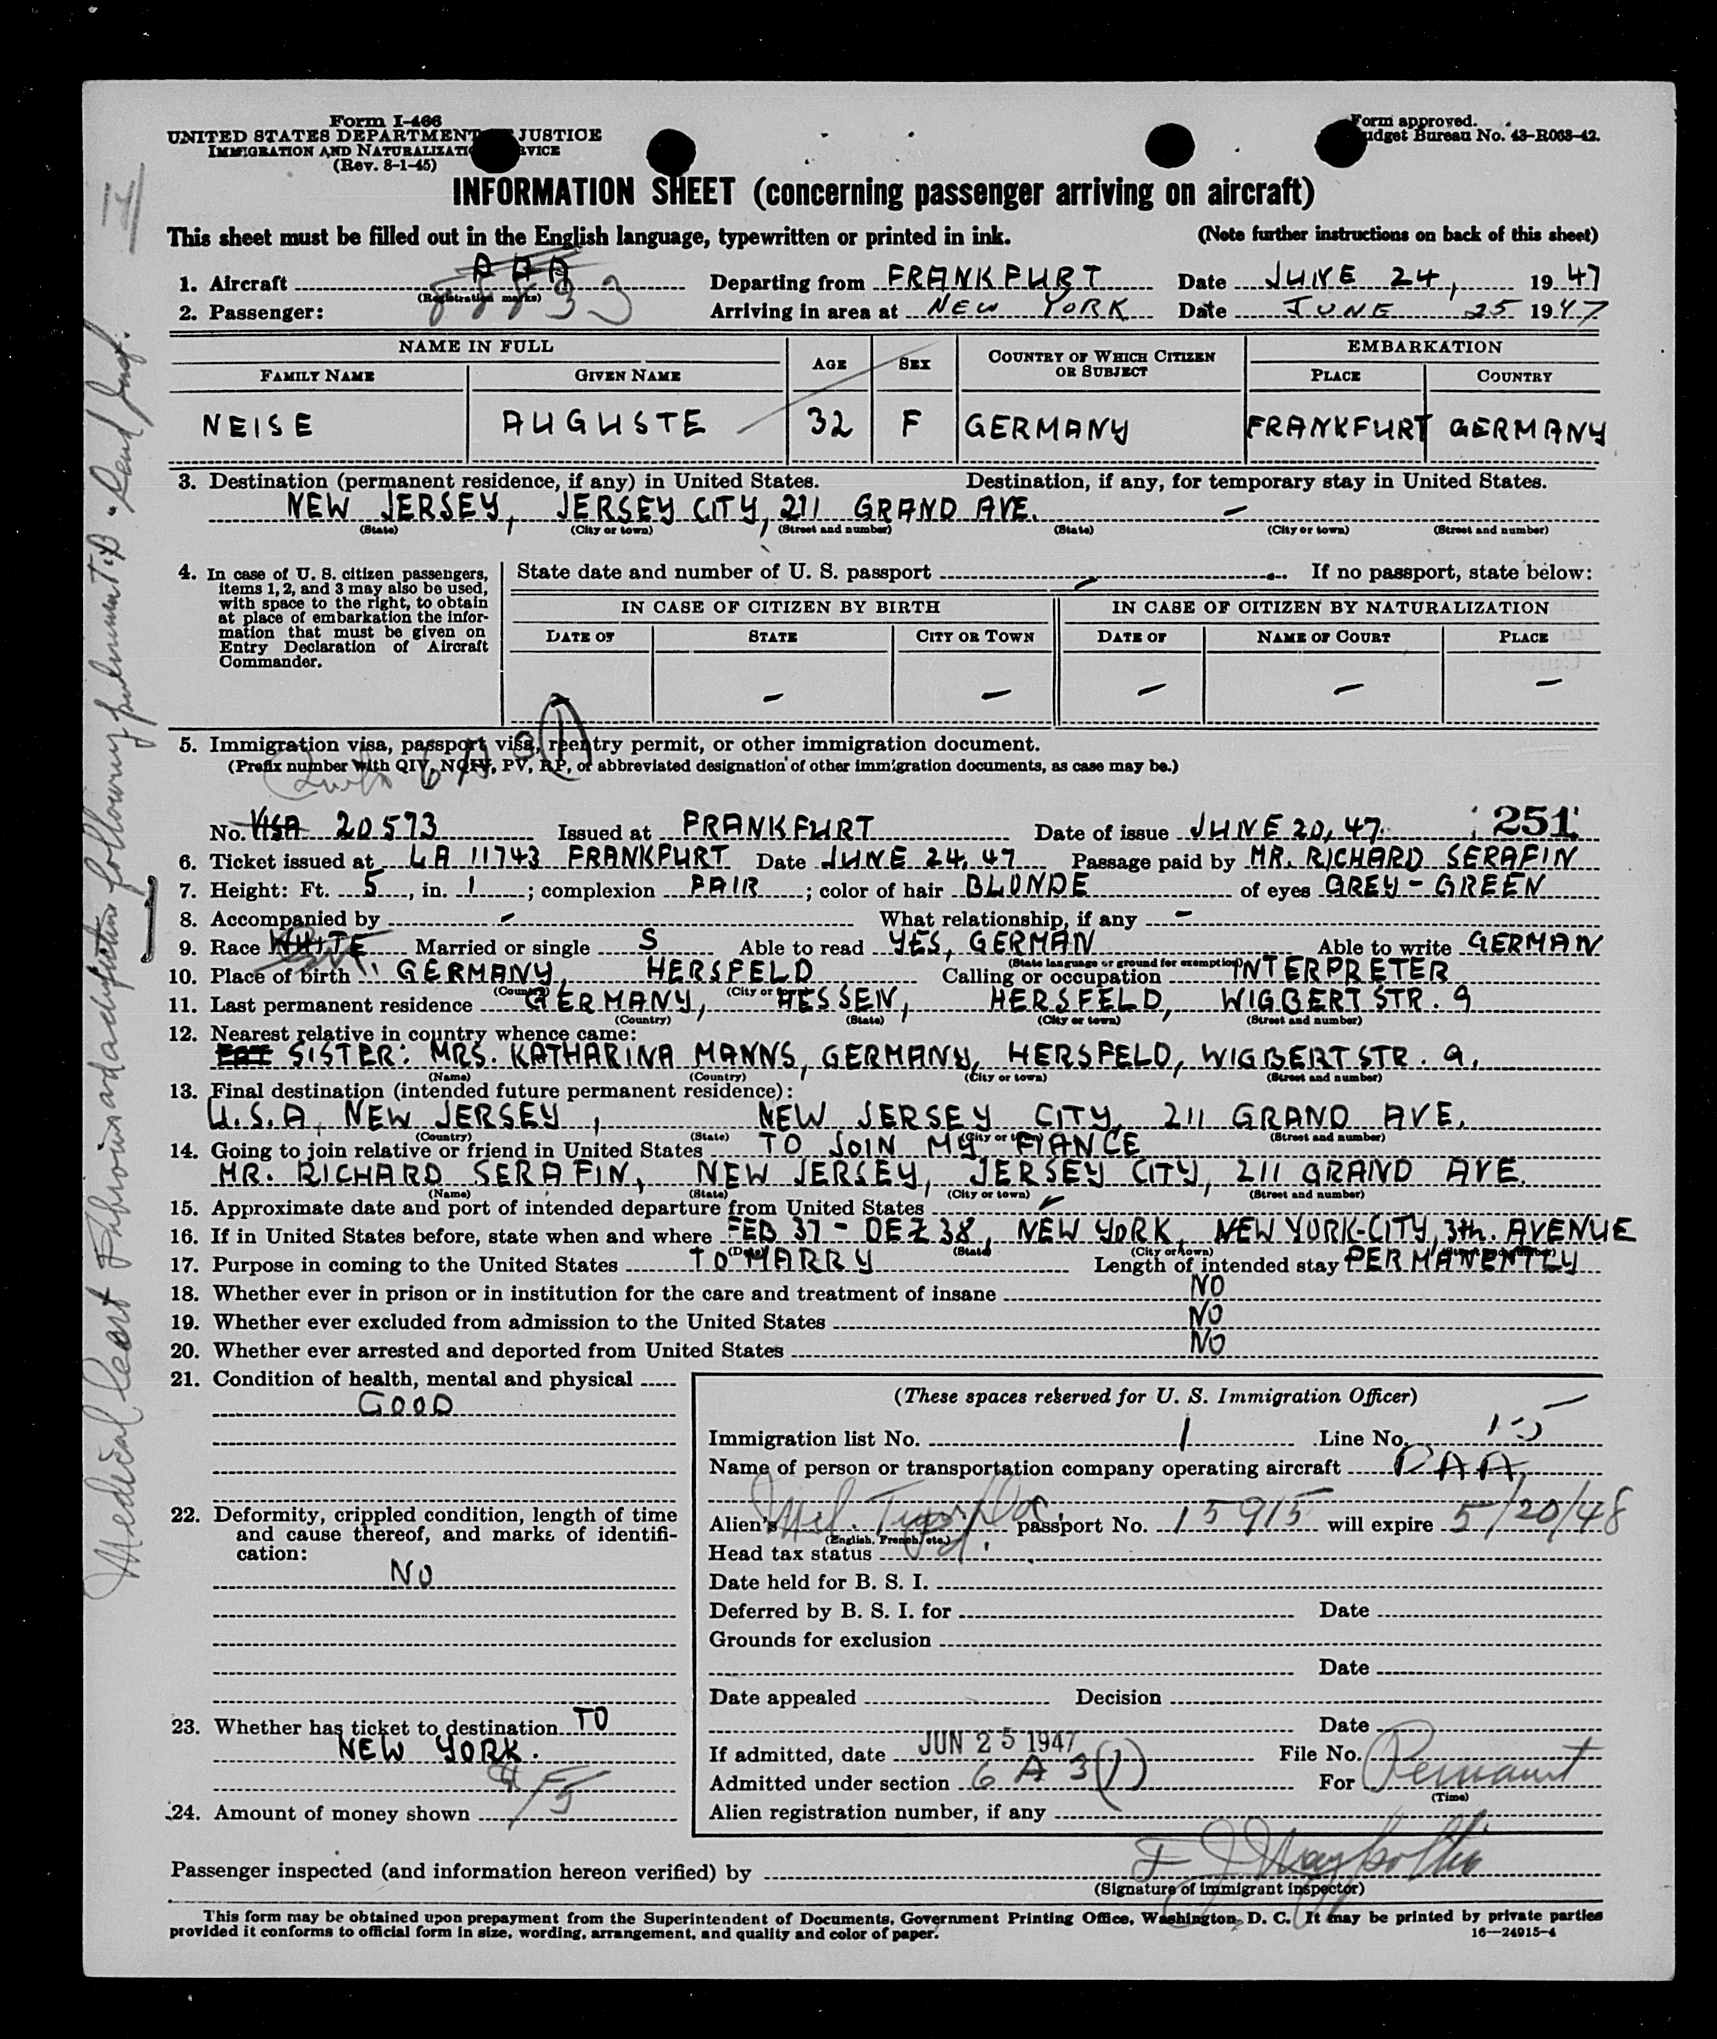 Form I-466
UNITED STATES DEPARTMENT JUSTICE
IMMIGRATION AND NATURALIZATI RVICE
(Rev. 8-1-45)
Form approved.
udget Bureau No. 43-R068-42.
INFORMATION SHEET (concerning passenger arriving on aircraft)
This sheet must be filled out in the English language, typewritten or printed in ink. (Note further instructions on back of this sheet)
1. Aircraft Departing from FRANKFURT Date JUNE 24, 1947
(Registration marks)
2. Passenger: Arriving in area at NEW YORK Date JUNE 25 1947
NAME IN FULL AGE SEX COUNTRY OF WHICH CITIZEN OR SUBJECT EMBARKATION
FAMILY NAME GIVEN NAME PLACE COUNTRY
NEISE AUGUSTE 32 F GERMANY FRANKFURT GERMANY
3. Destination (permanent residence, if any) in United States. Destination, if any, for temporary stay in United States.
NEW JERSEY, JERSEY CITY, 211 GRAND AVE. –
(State) (City or town) (Street and number) (State) (City or town) (Street and number)
4. In case of U. S. citizen passengers, items 1, 2, and 3 may also be used, with space to the right, to obtain at place of embarkation the information that must be given on Entry Declaration of Aircraft Commander.
State date and number of U. S. passport – If no passport, state below:
IN CASE OF CITIZEN BY BIRTH IN CASE OF CITIZEN BY NATURALIZATION
DATE OF STATE CITY OR TOWN DATE OF NAME OF COURT PLACE
– – – – – –
5. Immigration visa, passport visa, reentry permit, or other immigration document.
(Prefix number with QIV, NQIV, PV, RP, or abbreviated designation of other immigration documents, as case may be.)
No. VISA 20573 Issued at FRANKFURT Date of issue JUNE 20, 47. 251
6. Ticket issued at LA 11743 FRANKFURT Date JUNE 24, 47 Passage paid by MR. RICHARD SERAFIN
7. Height: Ft. 5, in. 1; complexion FAIR; color of hair BLONDE of eyes GREY-GREEN
8. Accompanied by – What relationship, if any –
9. Race WHITE Married or single S Able to read YES, GERMAN Able to write GERMAN
(State language or ground for exemption)
10. Place of birth GERMANY, HERSFELD Calling or occupation INTERPRETER
11. Last permanent residence GERMANY, HESSEN, HERSFELD, WIGBERTSTR. 9
(Country) (State) (City or town) (Street and number)
12. Nearest relative in country whence came:
SISTER: MRS. KATHARINA MANNS, GERMANY, HERSFELD, WIGBERTSTR. 9.
(Name) (Country) (City or town) (Street and number)
13. Final destination (intended future permanent residence):
U.S.A, NEW JERSEY, NEW JERSEY CITY, 211 GRAND AVE.
(Country) (State) (City or town) (Street and number)
14. Going to join relative or friend in United States TO JOIN MY FIANCE
MR. RICHARD SERAFIN, NEW JERSEY, JERSEY CITY, 211 GRAND AVE.
(Name) (State) (City or town) (Street and number)
15. Approximate date and port of intended departure from United States –
16. If in United States before, state when and where FEB 37 - DEZ 38, NEW YORK, NEW YORK-CITY, 3th. AVENUE
(Date) (State) (City or town)
17. Purpose in coming to the United States TO MARRY Length of intended stay PERMANENTLY
18. Whether ever in prison or in institution for the care and treatment of insane NO
19. Whether ever excluded from admission to the United States NO
20. Whether ever arrested and deported from United States NO
21. Condition of health, mental and physical
GOOD
22. Deformity, crippled condition, length of time and cause thereof, and marks of identification:
NO
23. Whether has ticket to destination TO
NEW YORK.
24. Amount of money shown
(These spaces reserved for U. S. Immigration Officer)
Immigration list No. 1 Line No. 15
Name of person or transportation company operating aircraft PAA
Alien's passport No. 15915 will expire 5/20/48
(English, French, etc.)
Head tax status
Date held for B. S. I.
Deferred by B. S. I. for Date
Grounds for exclusion
Date
Date appealed Decision
Date
If admitted, date JUN 25 1947 File No.
Admitted under section 6 A 3(1) For Permanent
(Time)
Alien registration number, if any
Passenger inspected (and information hereon verified) by
(Signature of immigrant inspector)
This form may be obtained upon prepayment from the Superintendent of Documents, Government Printing Office, Washington, D. C. It may be printed by private parties
provided it conforms to official form in size, wording, arrangement, and quality and color of paper. 16—24915-4
Medical cert Fibrous and following pulmonary T.B.